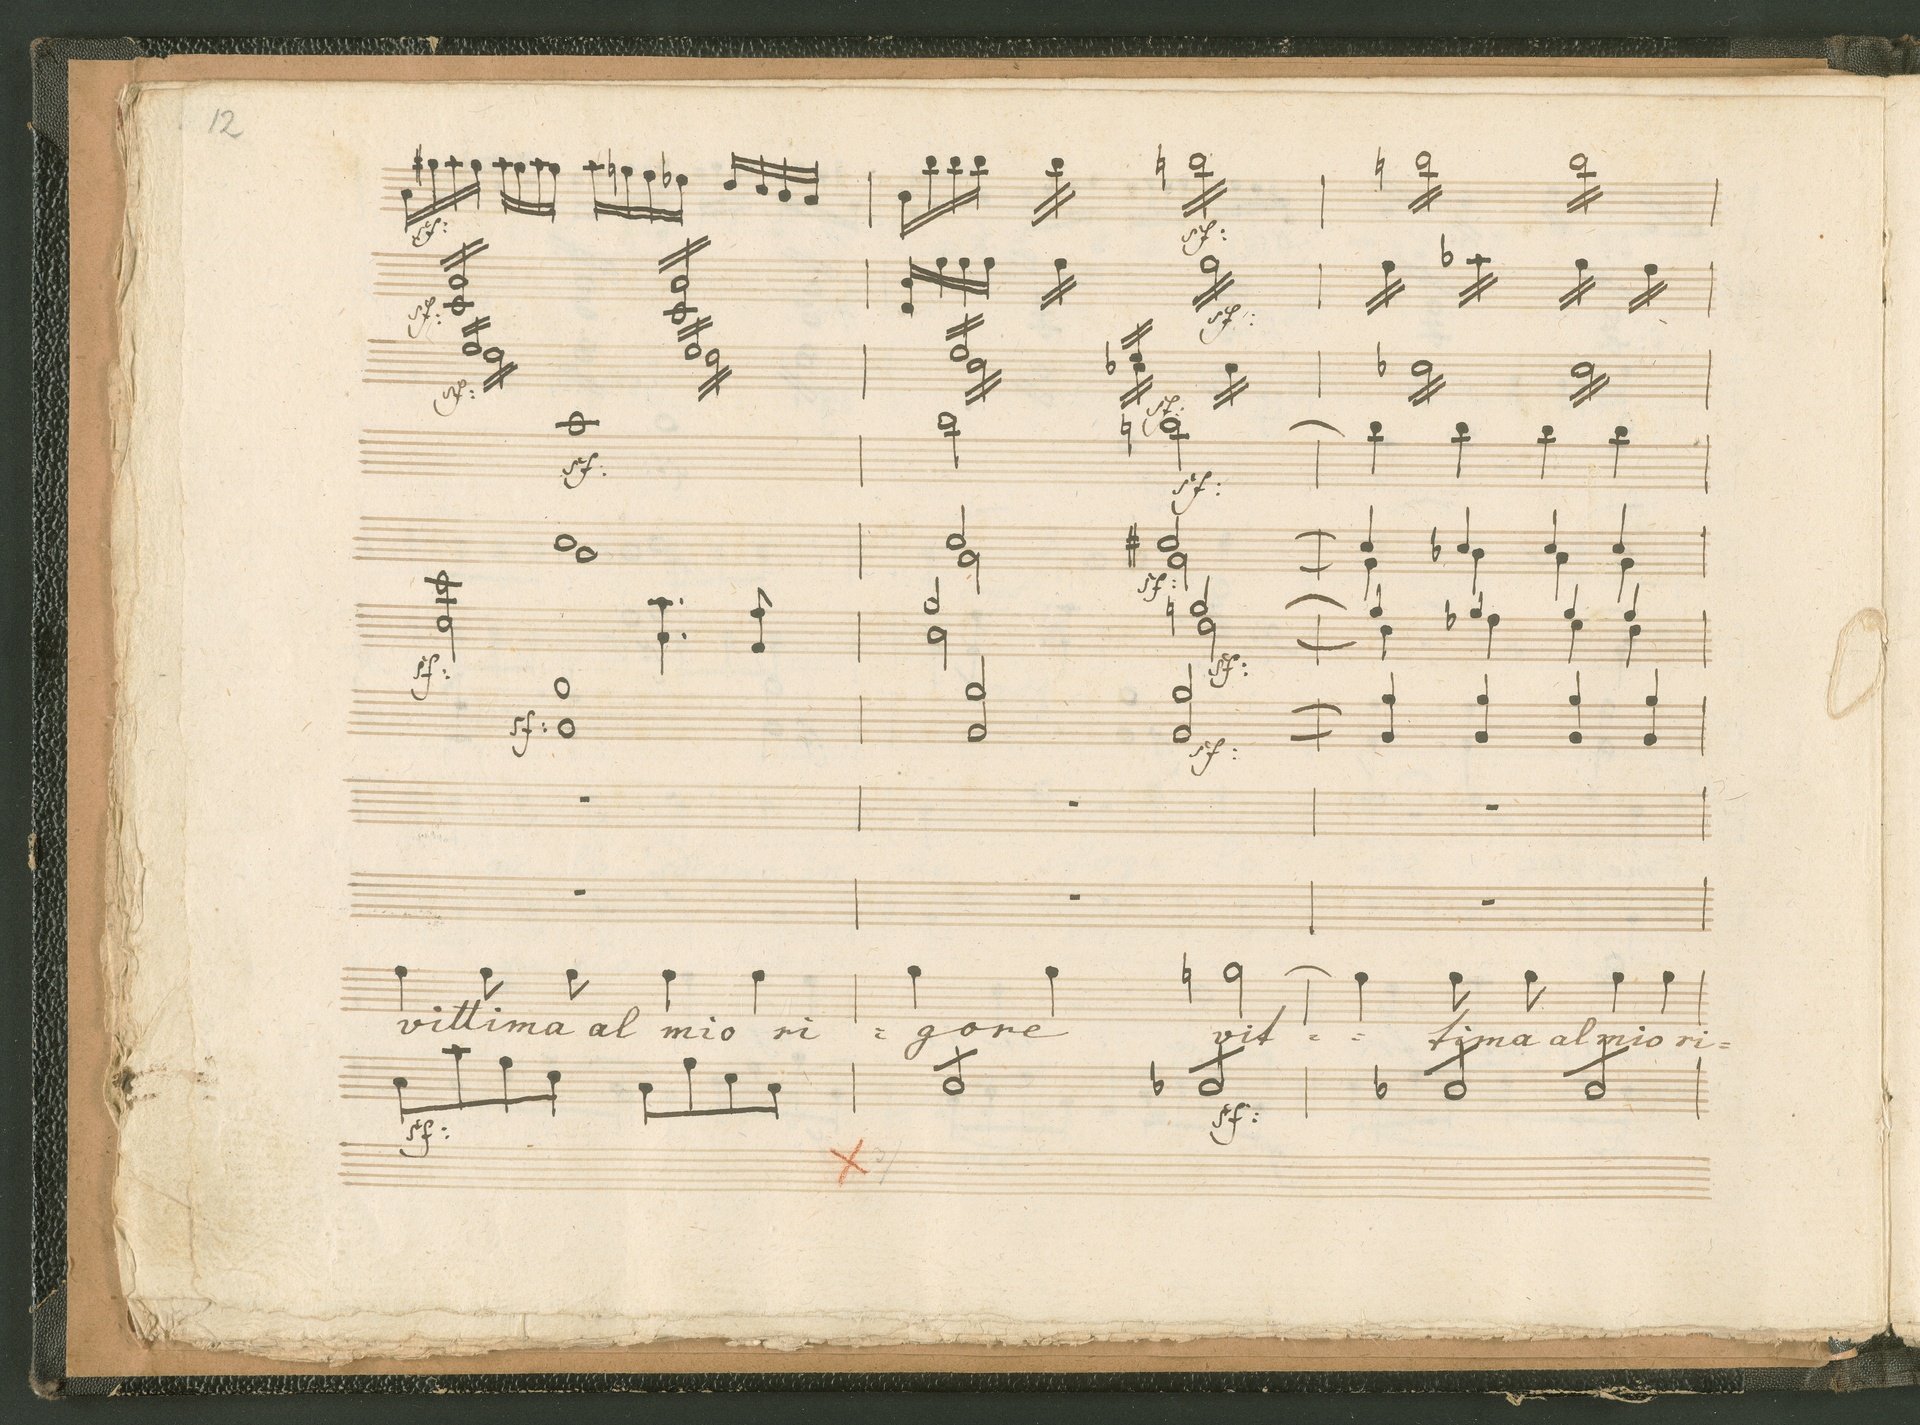 12
sf: sf:
sf: sf:
sf: sf:
sf: sf:
sf:
sf: sf:
sf: sf:
vittima al mio ri = gore vit = = tima al mio ri=
sf: sf: